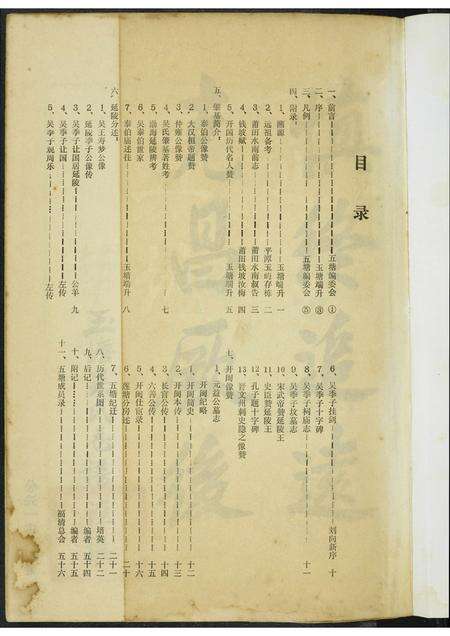 目录
一、前言 五塘编委会 ①
二、序 玉塘端升 ③
三、凡例 五塘编委会 ⑤
四、附录：
1、溯源 玉塘端升 一
2、远祖备考 平潭玉屿存栋 二
3、莆田水南前志 莆田水南叔告 三
4、钱坡赋 莆田钱坡汝梅 四
5、开国历代名人赞 玉塘端升 五
五、肇基简介：
1、泰伯公像赞
2、大汉桓帝题赞
3、仲雍公像赞
4、吴氏肇基著姓考 七
5、渤海延陵辨考
6、吴泰伯世家
7、泰伯庙述往 玉塘端升 八
六、延陵分述：
1、吴王寿梦公像
2、延陵季子公像传
3、吴季子让国居延陵 公羊 九
4、吴季子让国 左传
5、吴季子观周乐 左传
6、吴季子挂剑 刘向新序 十
7、吴季子十字碑
8、吴季子祠庙志 十一
9、吴季子坟墓志
10、宋武帝赞延陵王
11、史臣赞延陵王
12、孔子题十字碑
13、晋文州刺史隐之像赞
七、开闽像赞
1、元益公墓志
开闽纪略
1、开闽简史 十二
2、开闽本传 十三
3、长官公传 十四
4、六善公传 十五
5、开闽仕宦录 十六
6、莲塘分房述 二十
7、五塘纪迁 二十一
八、历代世系图 培英 二十二
九、后记 编者 五十四
十、附记 编者 五十五
十一、五塘成员录 福清总会 五十六